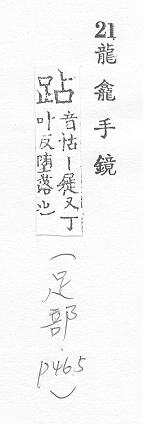 21龍龕手鏡
跕
音怗丨屣又丁
叶反墮落也
(足部.
p465)